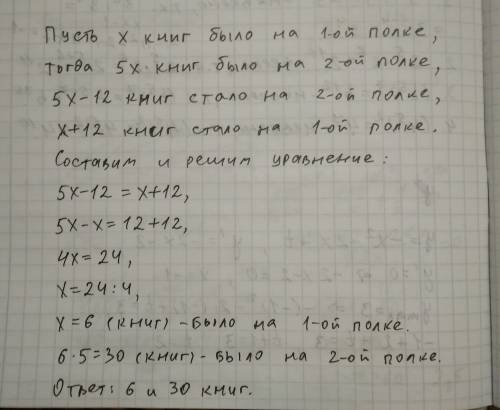 Пусть x книг было на 1-ой полке,
тогда 5x книг было на 2-ой полке,
5x-12 книг стало на 2-ой полке,
x+12 книг стало на 1-ой полке.
Составим и решим уравнение:
5x-12 = x+12,
5x-x = 12+12,
4x = 24,
x = 24:4,
x = 6 (книг) - было на 1-ой полке.
6·5=30 (книг) - было на 2-ой полке.
Ответ: 6 и 30 книг.